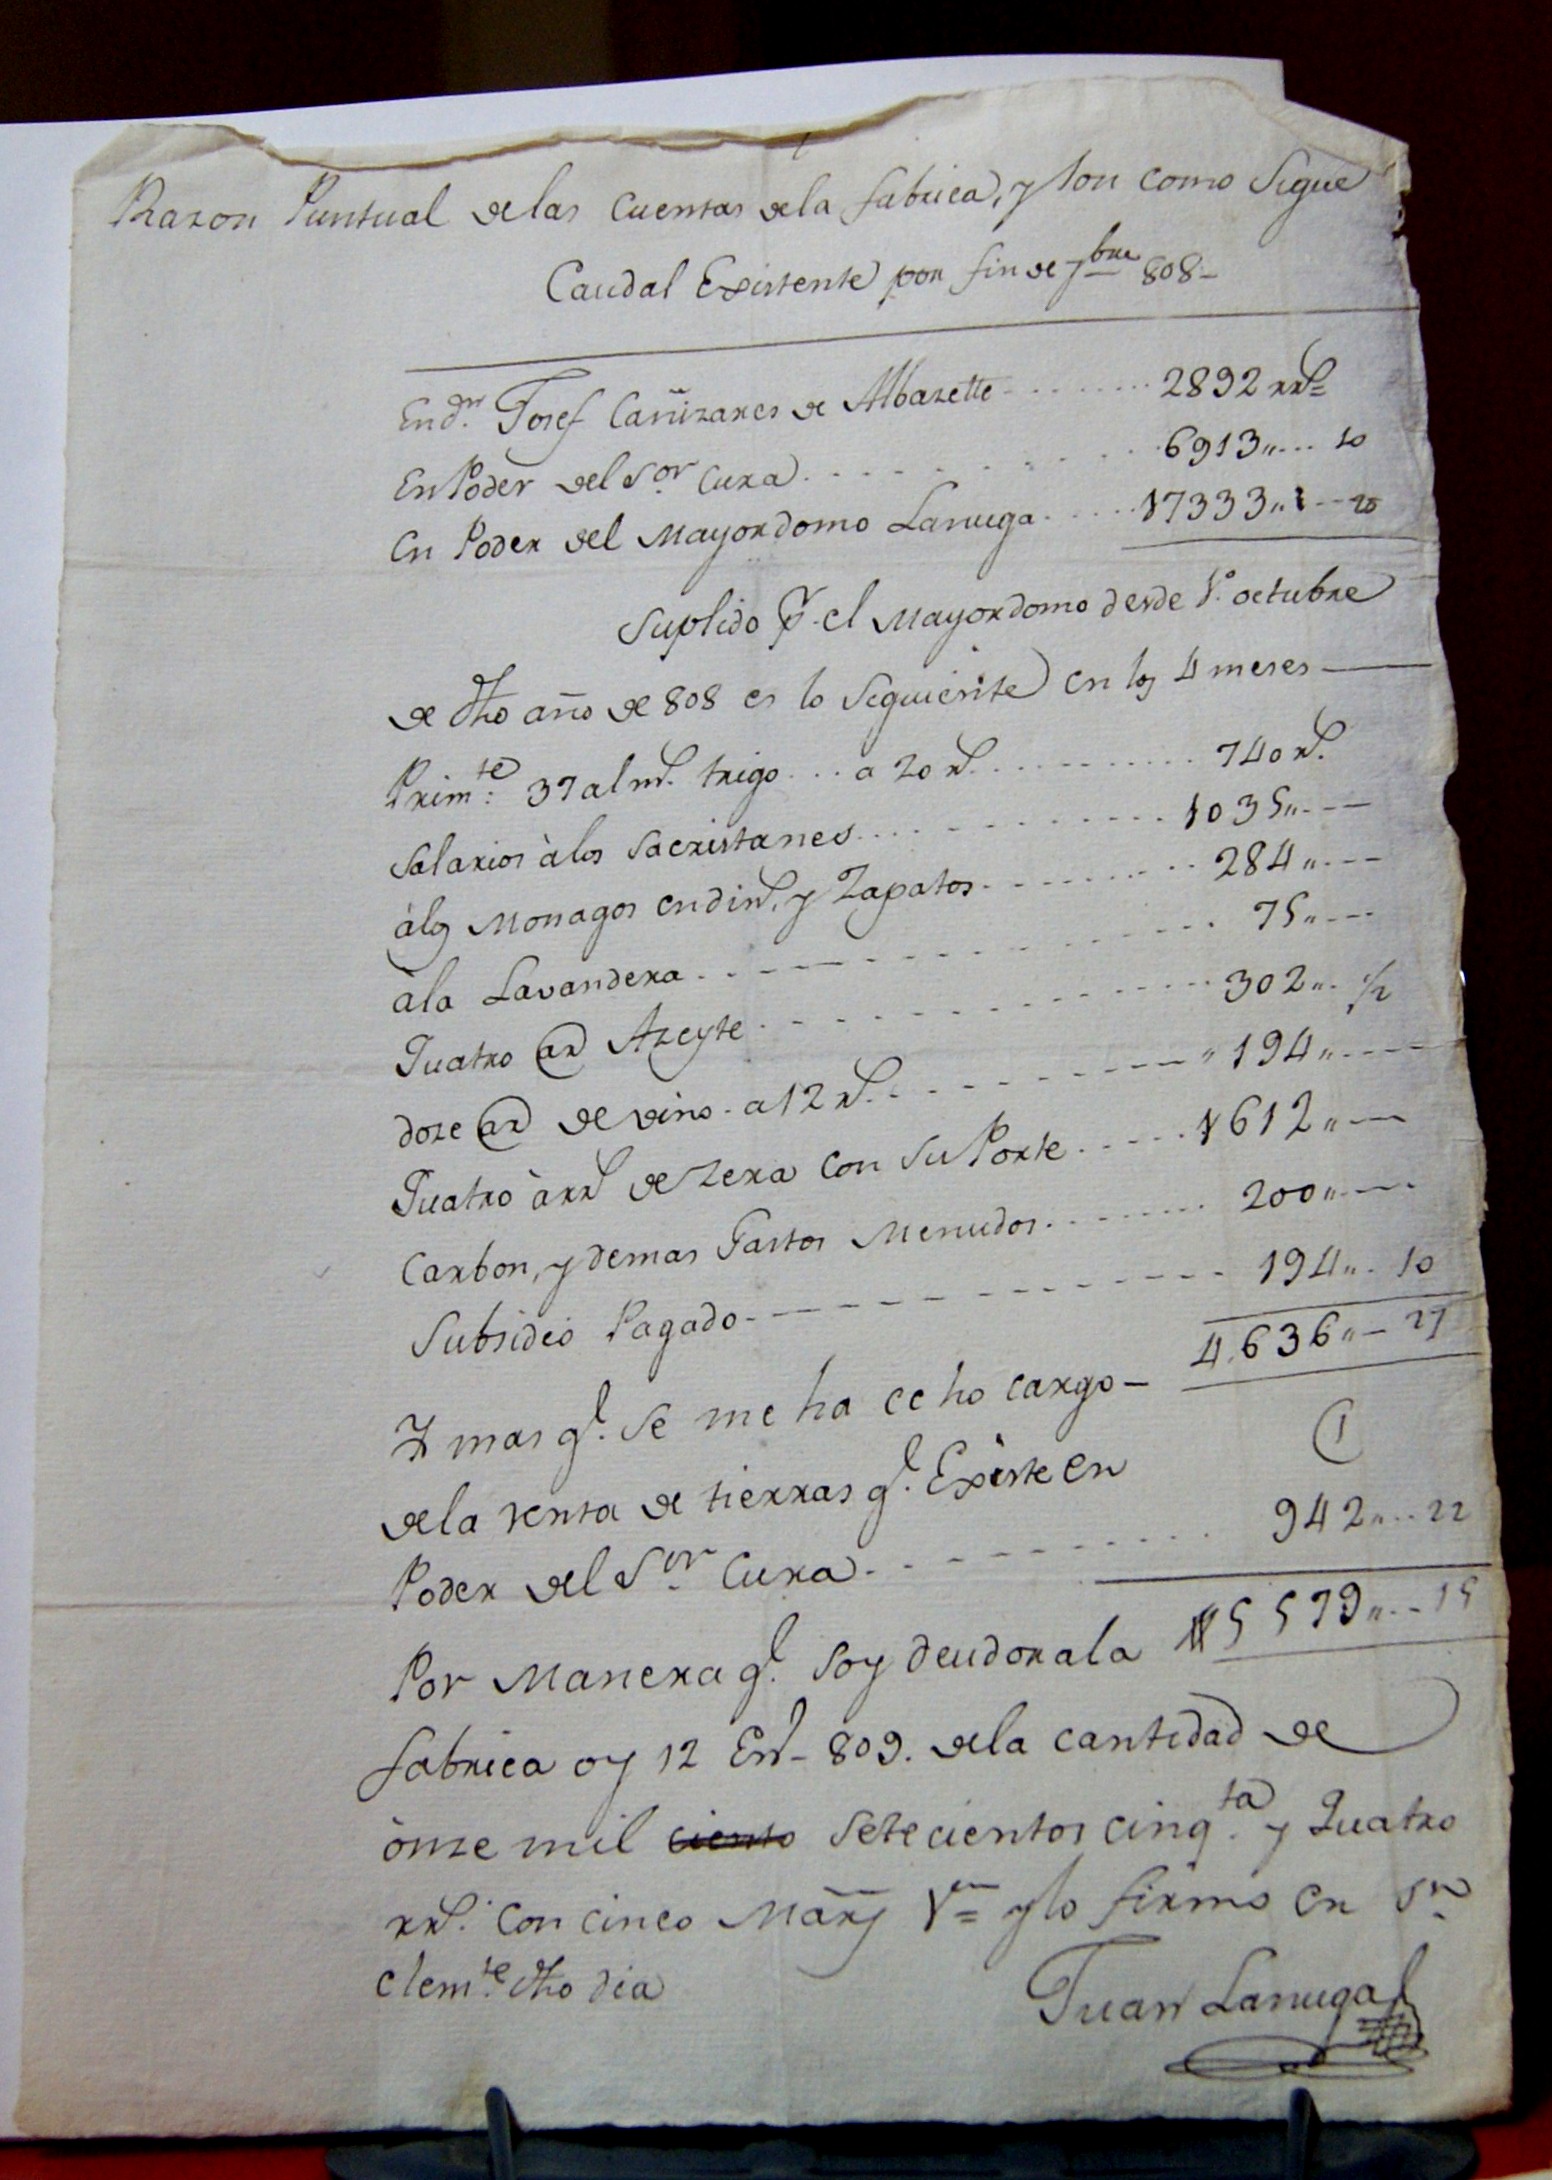 Razon Puntual de las Cuentas de la fabrica, y son como Sigue
Caudal Existente por fin de 7bre 808-
En dn. Josef Cañizares de Albazette 2892 rrs
En Poder del Sor Cura 6913 10
En Poder del Mayordomo Lanuga 17333 20
Suplido pr. el Mayordomo desde 1º octubre
de dho año de 808 es lo Siguiente en los 4 meses
Primte: 37 alms. trigo a 20 rs. 740 rs.
Salarios à los Sacristanes 1035
à los Monagos en dinº. y Zapatos 284
à la Lavandera 75
Quatro ar Azeyte 302 1/2
doze ar de vino a 12 rs. 194
Quatro àrrs de Zera con su Porte 1612
Carbon, y demas Gastos Menudos 200
Subsidio Pagado 194 10
4.636 27
Y mas q. se me ha echo cargo
de la renta de tierras q. Existe en
Poder del Sor Cura 942 22
Por Manera q. Soy deudor a la 5579 15
fabrica oy 12 Enº 809. de la cantidad de
ònze mil ciento Setecientos cinqta. y Quatro
rrs. con cinco Mars Vn y lo firmo en Sn
Clemte. dho dia
Juan Lanuga